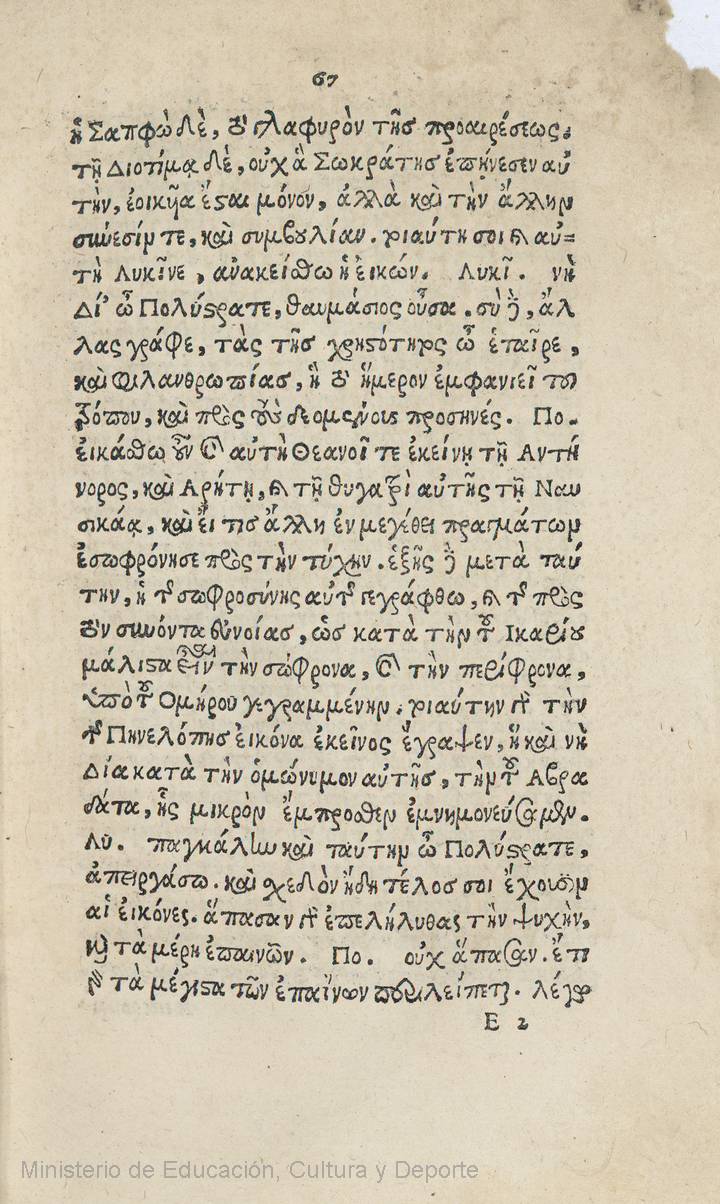 67
ἡ Σαπφὼ δὲ, τὸ γλαφυρὸν τῆς προαιρέσεως.
τῇ Διοτίμᾳ δὲ, οὐχ ἃ Σωκράτης ἐπῄνεσεν αὐ
τὴν, ἐοικυῖα ἔσται μόνον, ἀλλὰ καὶ τὴν ἄλλην
σύνεσίν τε, καὶ συμβουλίαν. τοιαύτη σοι καὶ αὕ=
τη Λυκῖνε, ἀνακείσθω ἡ εἰκών. Λυκῖ. νὴ
Δί' ὦ Πολύστρατε, θαυμάσιος οὖσα. σὺ δὲ, ἄλ
λας γράφε, τὰς τῆς χρηστότητος ὦ ἑταῖρε,
καὶ φιλανθρωπίας, ἣ τὸ ἥμερον ἐμφανιεῖ τοῦ
τρόπου, καὶ πρὸς τοὺς δεομένους προσηνές. Πο.
εἰκάσθω οὖν καὶ αὐτὴ Θεανοῖ τε ἐκείνῃ τῇ Ἀντή
νορος, καὶ Ἀρήτῃ, καὶ τῇ θυγατρὶ αὐτῆς τῇ Ναυ
σικάᾳ, καὶ εἴ τις ἄλλη ἐν μεγέθει πραγμάτων
ἐσωφρόνησε πρὸς τὴν τύχην. ἑξῆς δὲ μετὰ ταύ
την, ἡ τῆς σωφροσύνης αὐτῆς γεγράφθω, καὶ τῆς πρὸς
τὸν συνόντα εὐνοίας, ὡς κατὰ τὴν τοῦ Ἰκαρίου
μάλιστα εἶναι τὴν σώφρονα, καὶ τὴν περίφρονα,
ὑπὸ τοῦ Ὁμήρου γεγραμμένην. τοιαύτην γὰρ τὴν
τῆς Πηνελόπης εἰκόνα ἐκεῖνος ἔγραψεν, ἢ καὶ νὴ
Δία κατὰ τὴν ὁμώνυμον αὐτῆς, τὴν τοῦ Ἀβρα
δάτα, ἧς μικρὸν ἔμπροσθεν ἐμνημονεύσαμεν.
Λυ. παγκάλως καὶ ταύτην ὦ Πολύστρατε,
ἀπειργάσω. καὶ σχεδὸν ἤδη τέλος σοι ἔχουσιν
αἱ εἰκόνες. ἅπασαν γὰρ ἐπελήλυθας τὴν ψυχὴν,
κατὰ μέρη ἐπαινῶν. Πο. οὐχ ἅπασαν. ἔτι
γὰρ τὰ μέγιστα τῶν ἐπαίνων περιλείπεται. λέγω
E 2
Ministerio de Educación, Cultura y Deporte